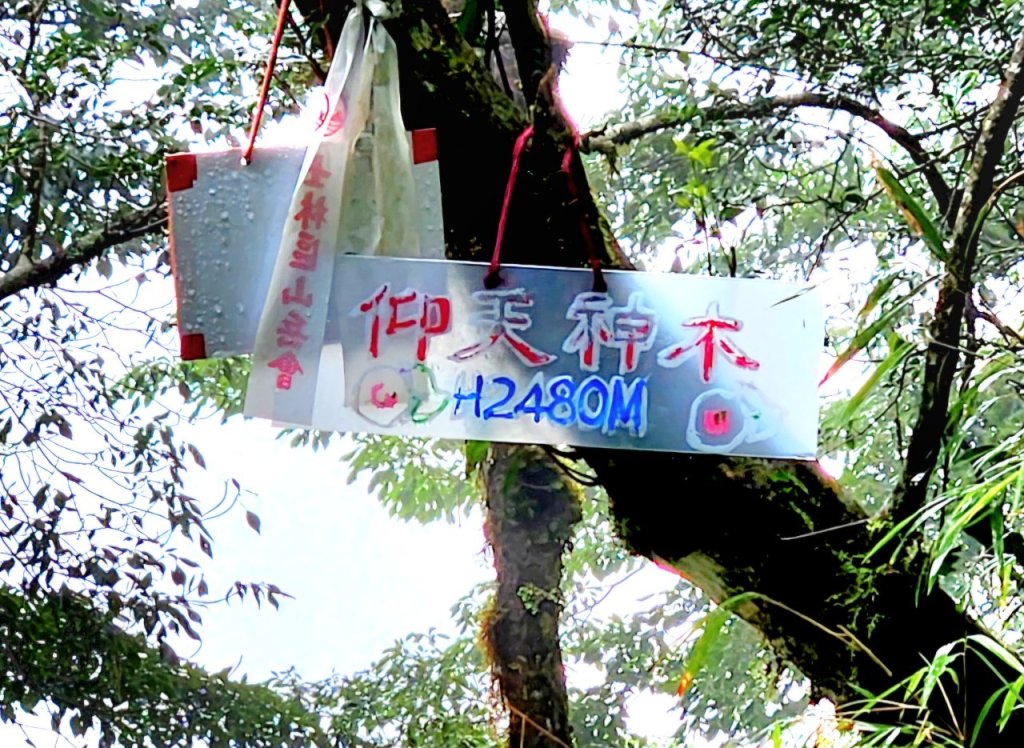 仰天神木
H2480M
山友會